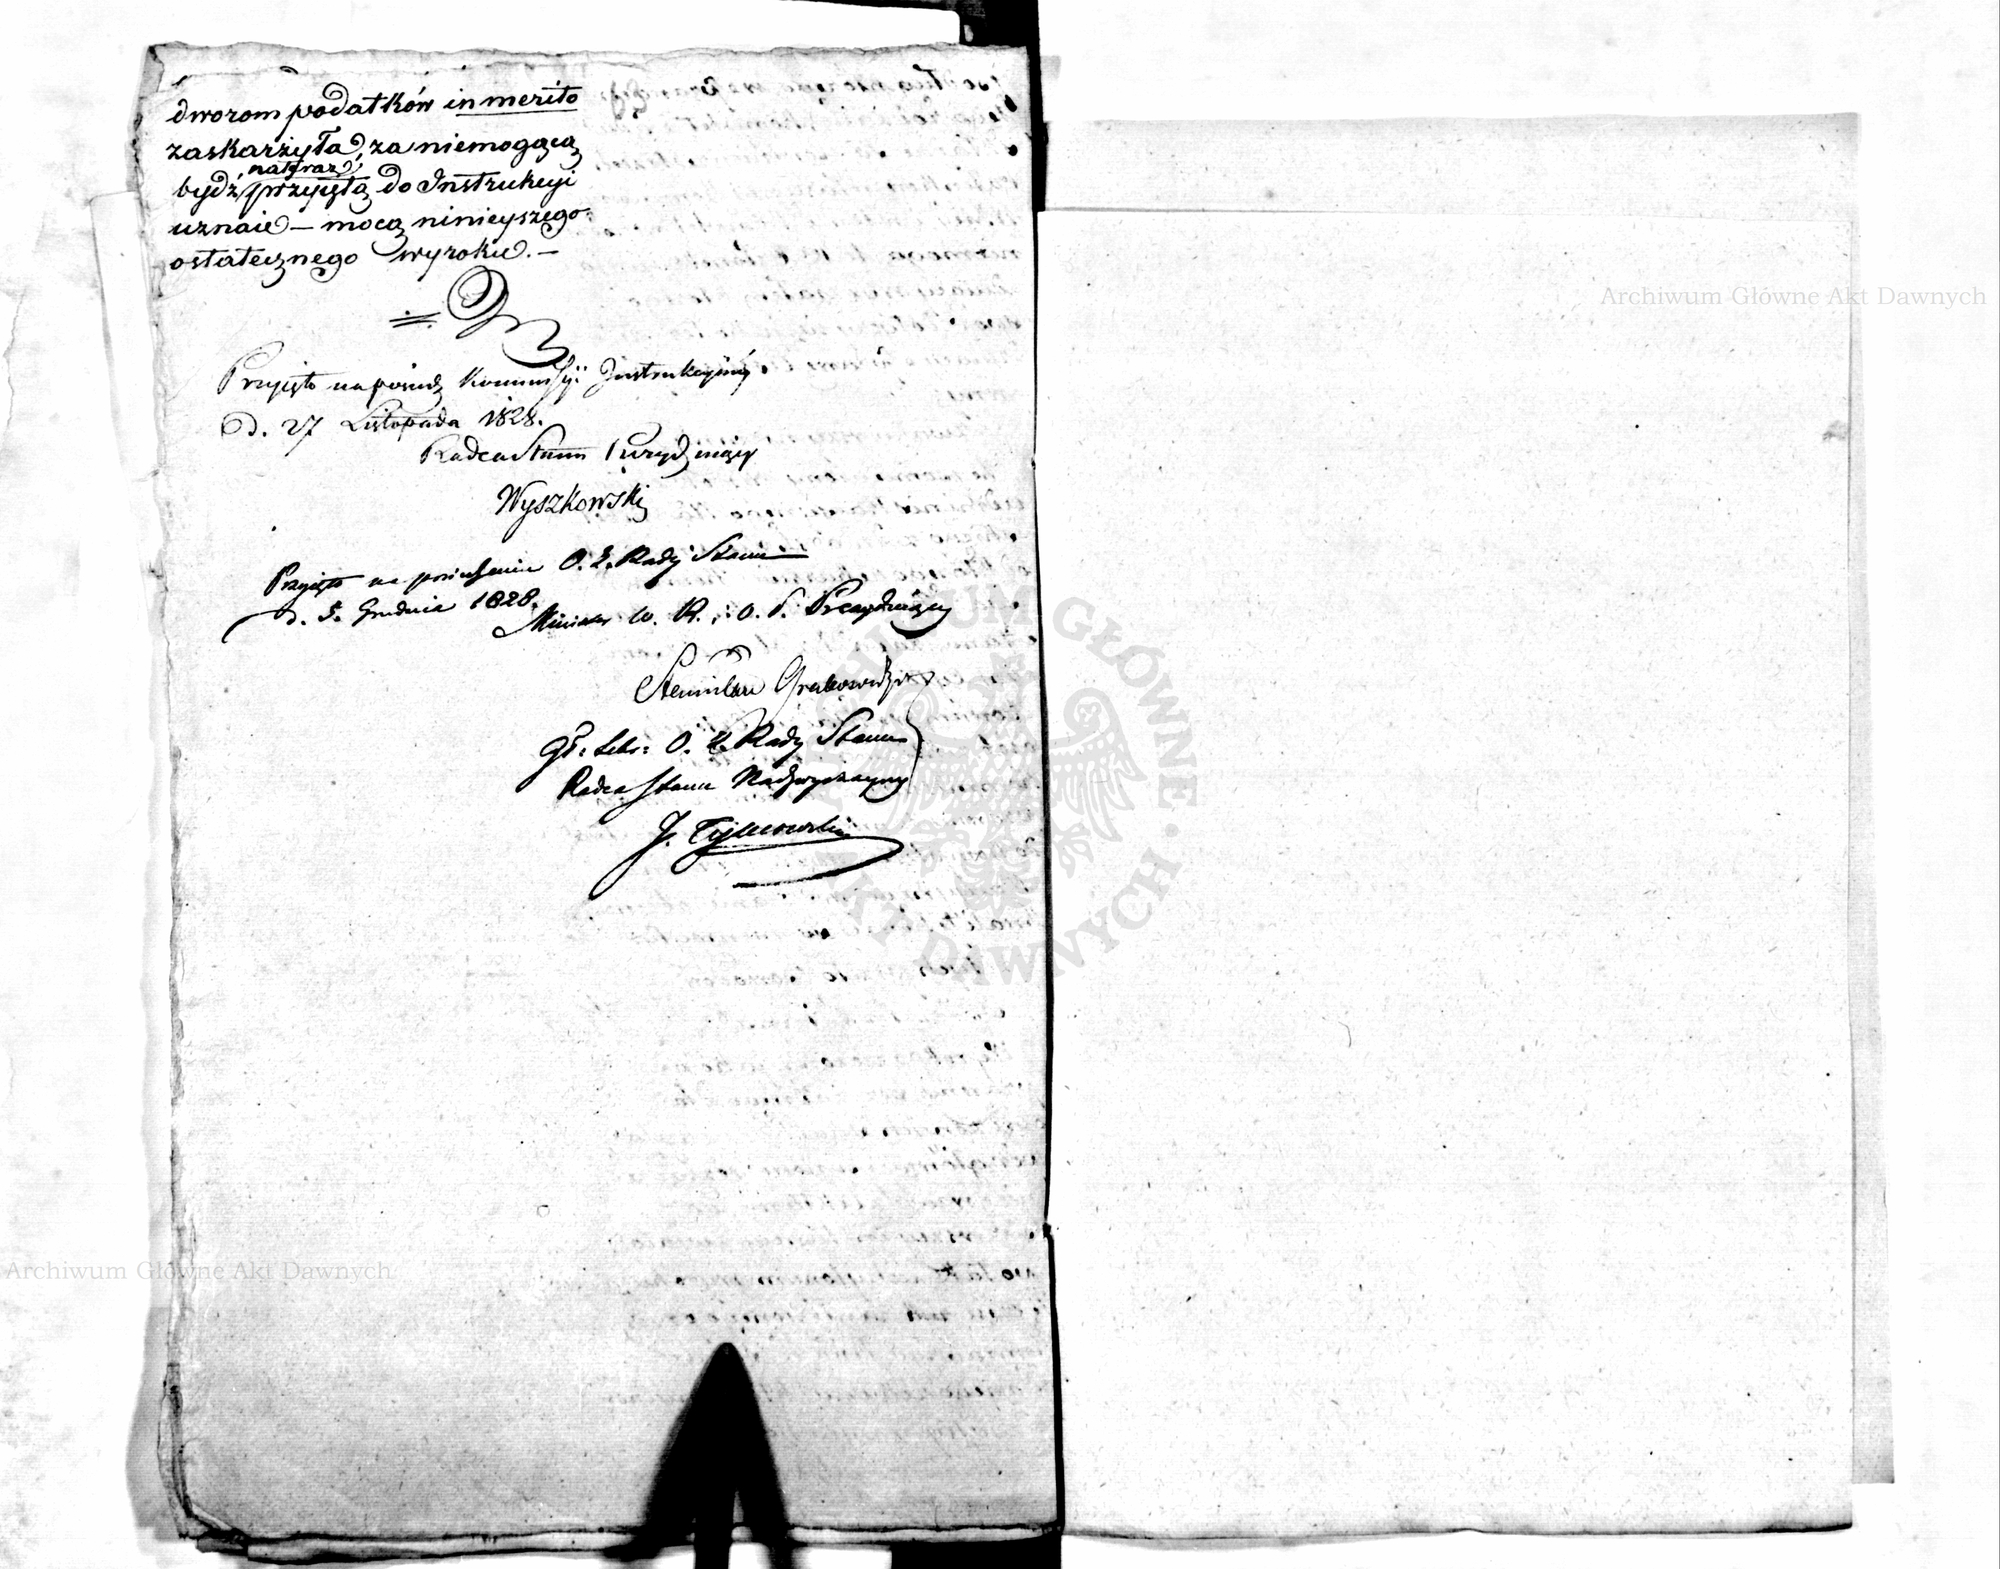 dworom podatków in merito
zaskarzyła, za niemogącą
bydź nateraz przyiętą do Instrukcyi
uznaie – mocą ninieyszego
ostatecznego wyroku. –
Przyięto na posiedz Kommissyi Instrukcyiney
D. 27 Listopada 1828.
Radca Stanu Prezyduiący
Wyszkowski
Przyięto na posiedzeniu O. Z. Rady Stanu
D. 5. Grudnia 1828.
Minister W. R. i O. P. Prezyduiący
Stanisław Grabowski
Gł: Sekr: O. Z. Rady Stanu
Radca Stanu Nadzwyczayny
J. Tymowski
Archiwum Główne Akt Dawnych
ARCHIWUM GŁÓWNE AKT DAWNYCH
Archiwum Główne Akt Dawnych